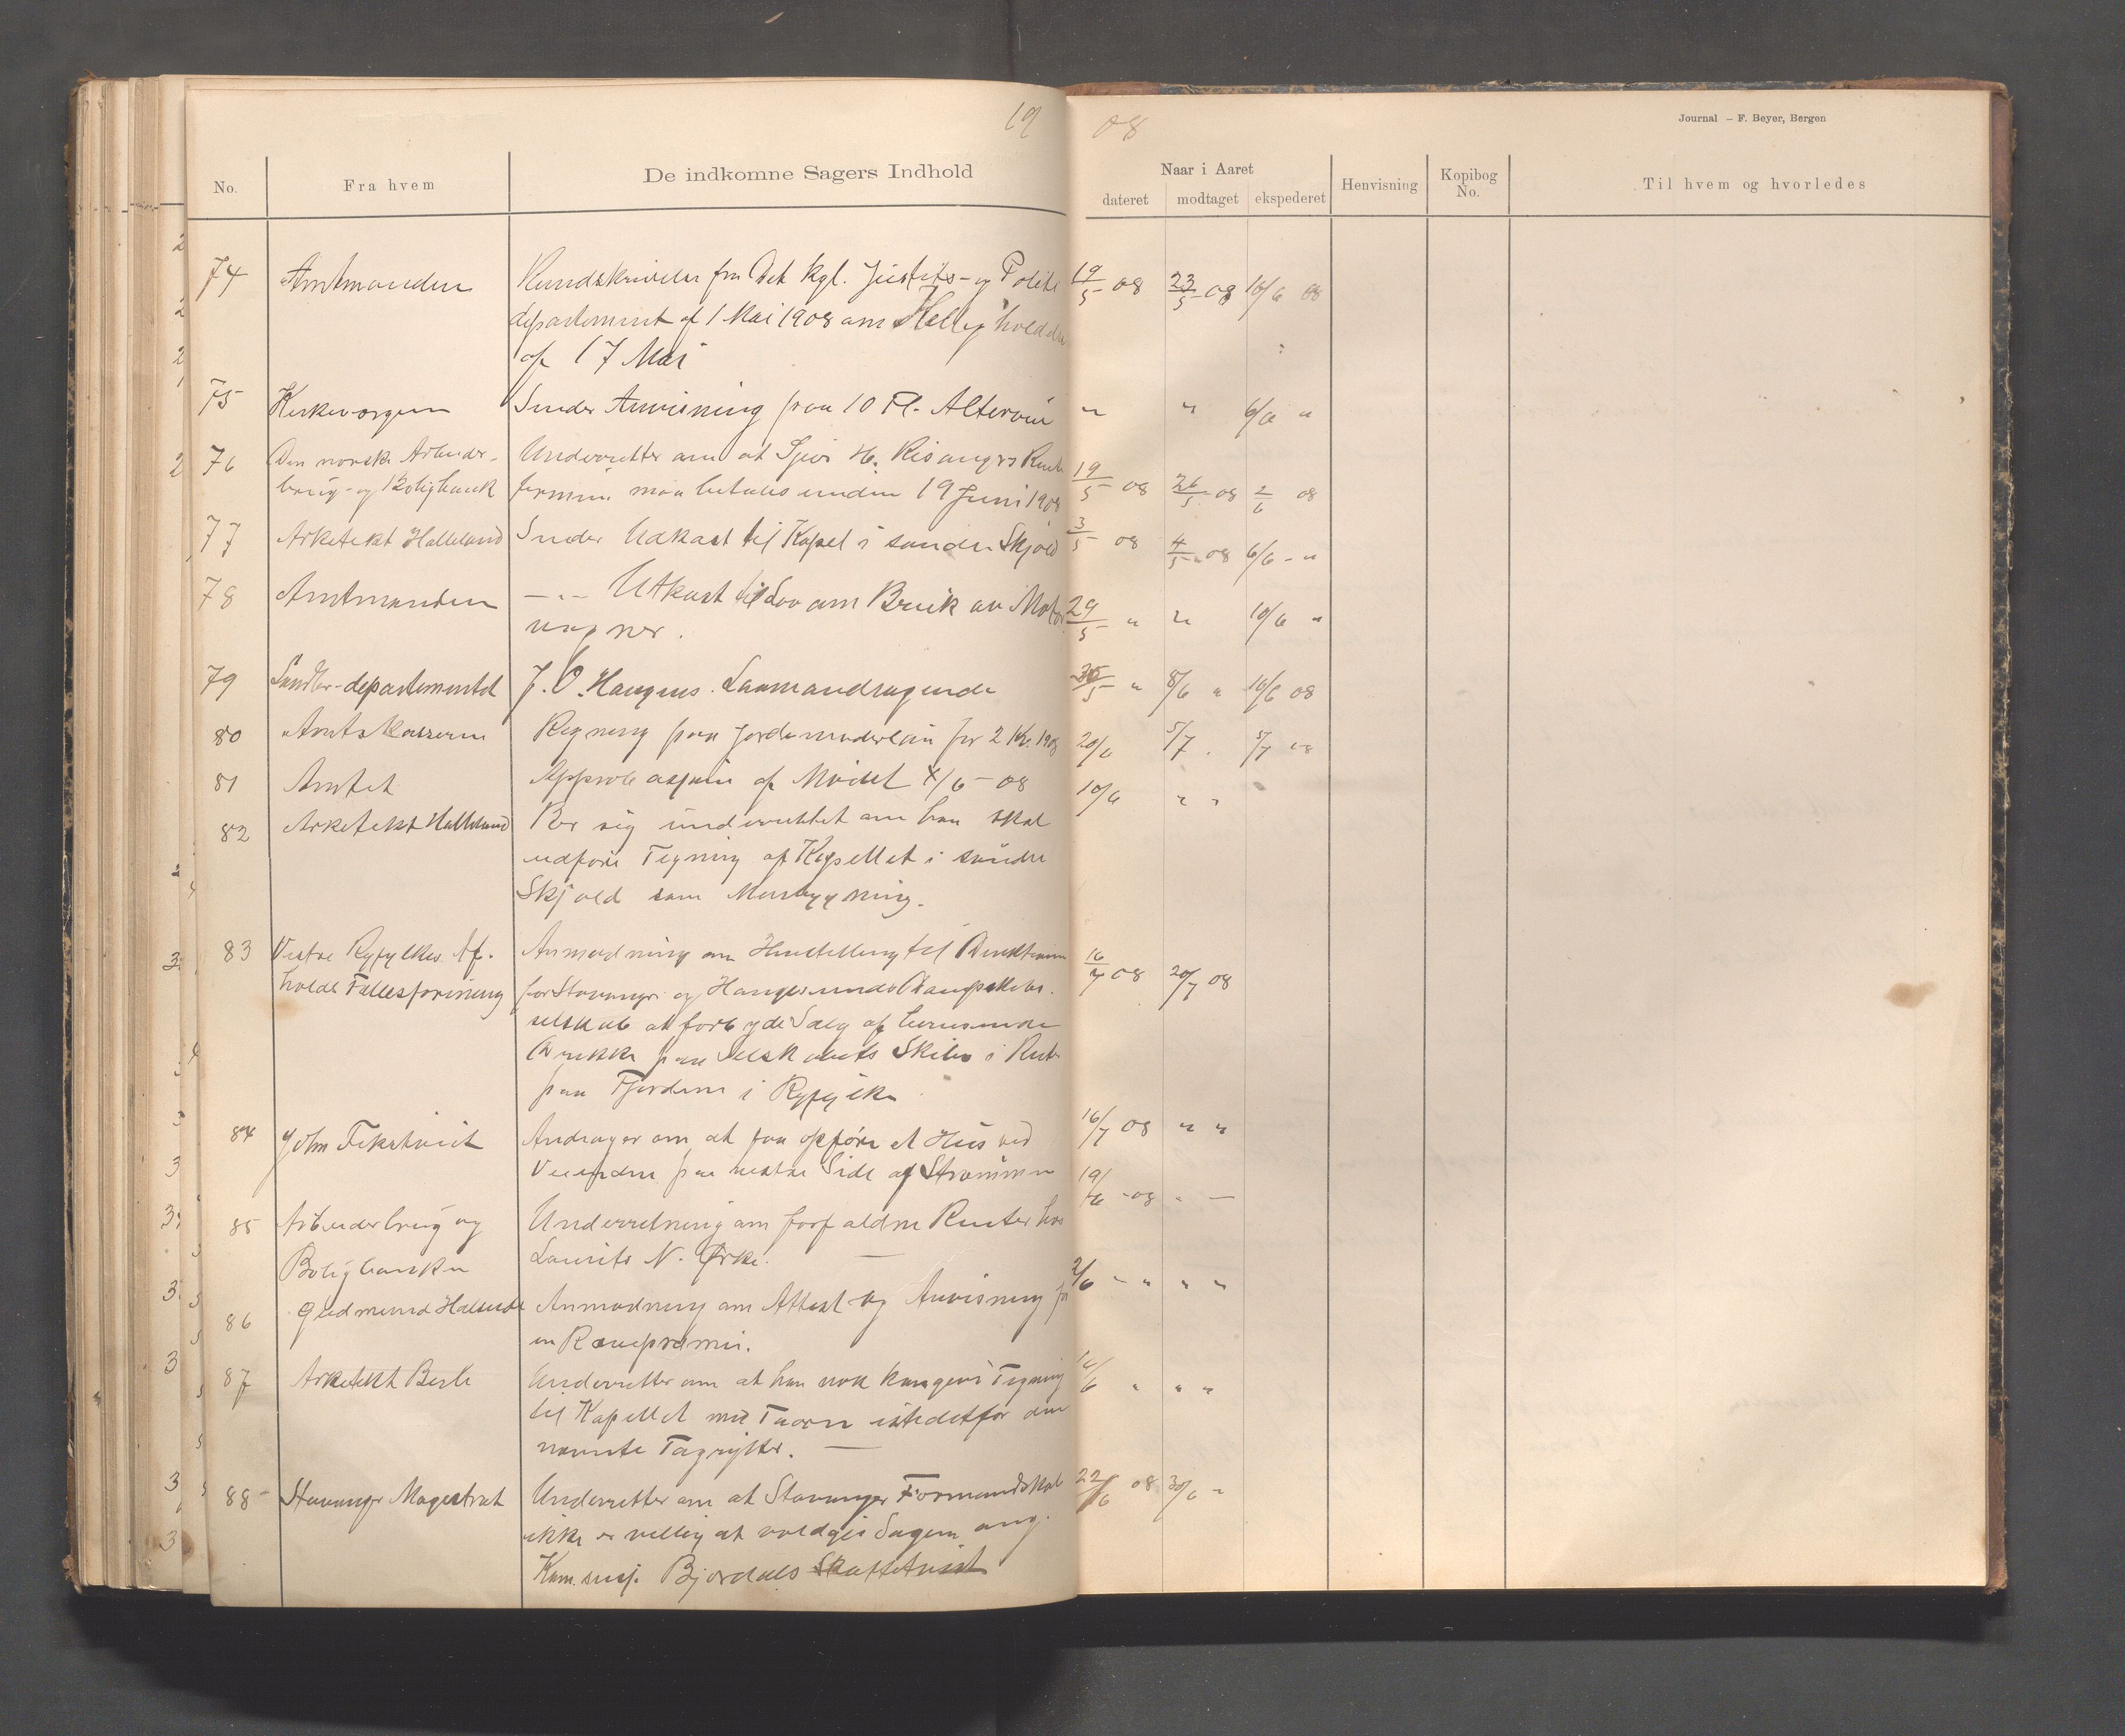 19 08
Journal – F. Beyer, Bergen
No. Fra hvem De indkomne Sagers Indhold Naar i Aaret dateret modtaget ekspederet Henvisning Kopibog No. Til hvem og hvorledes
74 Amtmanden Rundskrivelse fra Det kgl. Justits- og Politi 19/5 08 23/5 08 10/6 08
departement af 1 Mai 1908 om Helligholdelse
af 17 Mai
75 Kirkevergen Sender Anvisning paa 10 Fl. Altervin " " 6/6 "
76 Den norske Arbeider- Underretter om at H. Risangers Rente
brug- og Boligbank termin maa betales inden 19 Juni 1908 19/5 08 26/5 08 2/6 08
77 Arketekt Halleland Sender Udkast til Kapel i søndre Skjold 3/5 08 4/5 08 6/6 - "
78 Amtmanden — " — Utkast til Lov om Bruk av Motor 29/5 " " 10/6 "
vogner.
79 Landbr-departementet J. O. Haugens Laanandragende 30/5 " 8/6 " 10/6 08
80 Amtskasseren Regning paa Jordemoderløn for 2 Kv. 1908 20/6 5/7 . 5/7 08
81 Amtet af Mødet 4/6 - 08 10/6 " "
82 Arketekt Halleland Ber sig underrettet om han skal
udføre Tegning af Kapellet i søndre
Skjold som Murbygning.
83 Vestre Ryfylkes Af- Anmodning om Henstilling til Direktionen
holds Fællesforening for Stavanger og Haugesunds Dampskibs- 16/7 08 20/7 08
selskab at forbyde Salg af berusende
Drikke paa Selskabets Skibe i Rute
paa Fjordene i Ryfylke
84 John Andrager om at faa opføre et Hus ved 16/7 08 " "
paa vestre Side af Strømmen
85 Arbeiderbrug og Underretning om forfaldne Renter hos 19/6 - 08 " —
Boligbanken Laurits N. Ørke. —
86 Gudmund Anmodning om Attest og Anvisning for 2/6 - " " "
en
87 Arketekt Underretter om at han nok kan give Tegning /6 " " "
til Kapellet med Taarn istedetfor den
nævnte Tagrytter. —
88 Stavanger Magistrat Underretter om at Stavanger Formandskab 22/6 08 30/6 "
ikke er villig at voldgive Sagen ang.
Bjordals Skattetvist